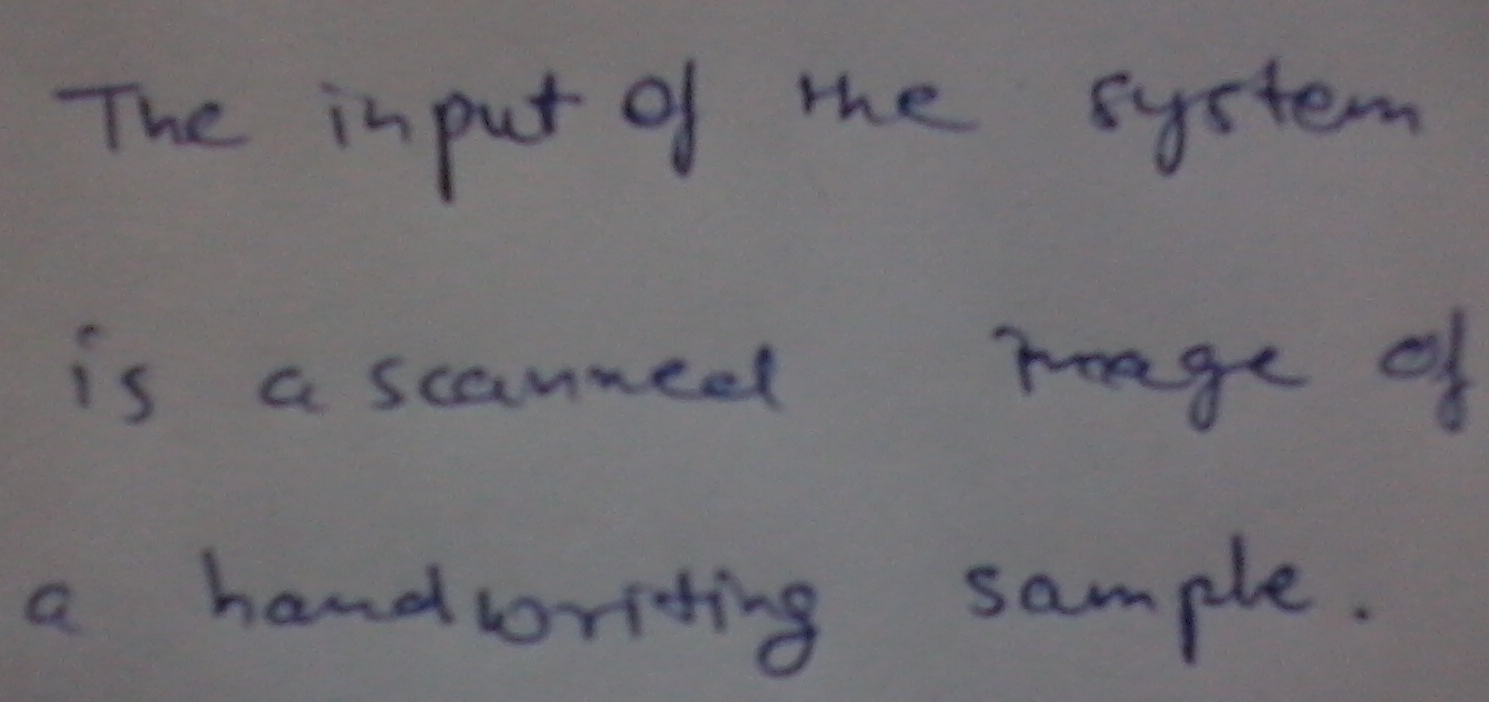 The input of the system
is a scanned image of
a handwriting sample.